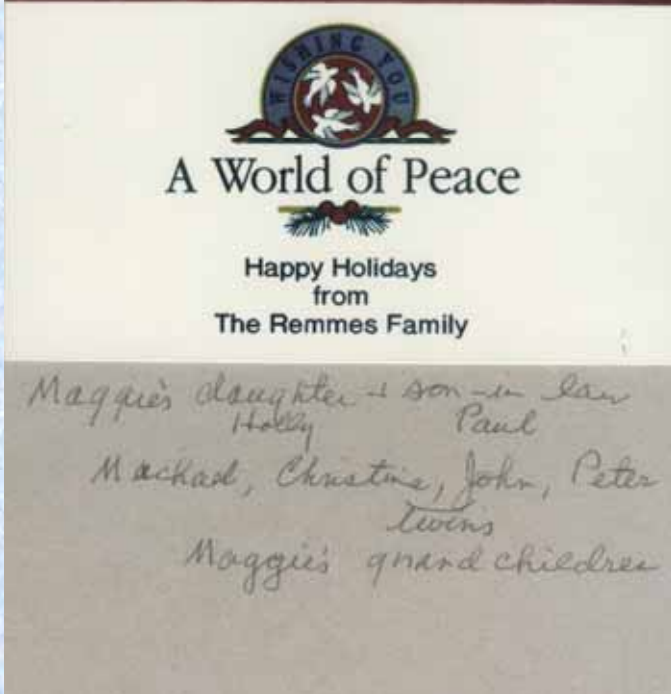 WISHING YOU
A World of Peace
Happy Holidays
from
The Remmes Family
Maggie's daughter + son-in law
Holly Paul
Machael, Christine, John, Peter
twins
Maggie's grand children